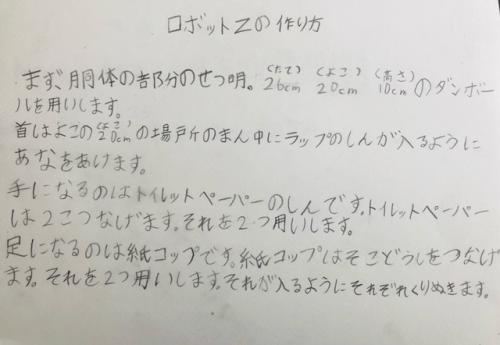 ロボットZの作り方
まず、胴体の部分のせつ明。26cm(たて) 20cm(よこ) 10cm(高さ)のダンボー
ルを用いします。
首はよこの20cm(よこ)の場所のまん中にラップのしんが入るように
あなをあけます。
手になるのはトイレットペーパーのしんです。トイレットペーパー
は2こつなげます。それを2つ用いします。
足になるのは紙コップです。紙コップはそこどうしをつなげ
ます。それを2つ用いします。それが入るようにそれぞれくりぬきます。